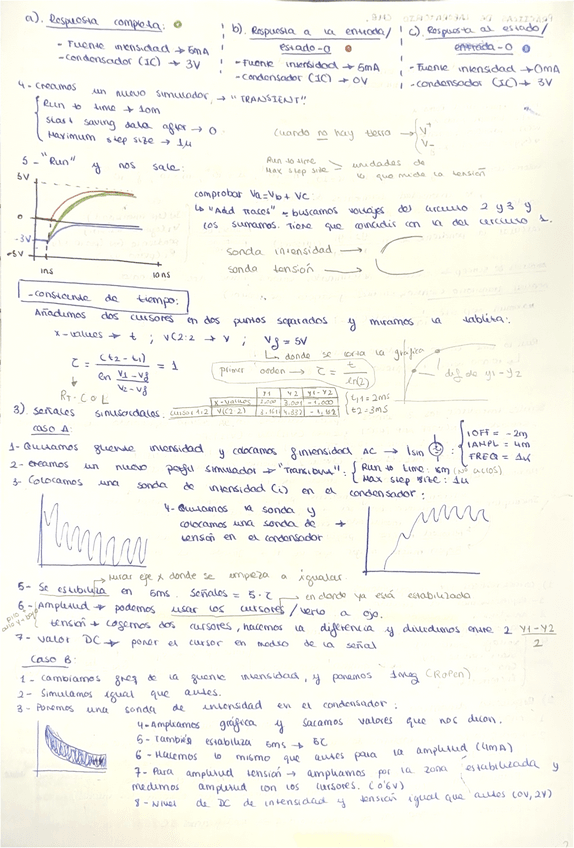 a). Respuesta completa:
- Fuente intensidad → 6mA
- condensador (IC) → 3V
b). Respuesta a la entrada/
estado-0
- Fuente intensidad → 6mA
- condensador (IC) → 0V
c). Respuesta al estado/
entrada-0
- Fuente intensidad → 0mA
- condensador (IC) → 3V
4- Creamos un nuevo simulador → "TRANSIENT".
Run to time → 10m
Start saving data after → 0
Maximum step size → 1μ
cuando no hay tierra → V+
V-
5- "Run" y nos sale:
Run to time
Max step size
unidades de
lo que mide la tensión
5V
0
-3V
-5V
1ns
10ns
comprobar Va=Vb+Vc:
↳ "Add Traces" → buscamos voltajes del circuito 2 y 3 y
los sumamos. Tiene que coincidir con la del circuito 1.
sonda intensidad →
sonda tensión →
- constante de tiempo:
Añadimos dos cursores en dos puntos separados y miramos la tablita:
x-values → t ; V(2:2 → V ; Vf = 5V
↳ donde se corta la gráfica
τ = (t2-t1) / ln (V1-Vf / V2-Vf) = 1
primer orden → τ = t / ln(2)
dif de y1-y2
Y1 Y2 Y1-Y2
X-values
cursor 1,2 V(2:2)
t2=3ms
3) Señales sinusoidales
CASO A:
1- Quitamos fuente intensidad y colocamos f.intensidad AC → Isin
IOFF = -2m
IAMPL = 4m
FREQ = 1k
2- creamos un nuevo perfil simulador → "Transitorio":
Max step size: 1μ
3- Colocamos una sonda de intensidad (i) en el condensador:
4- Quitamos la sonda y
colocamos una sonda de →
tensión en el condensador
↳ mirar eje x donde se empieza a igualar
5- Se estabiliza en 5ms. Señales = 5·τ
en donde ya está estabilizada
6- Amplitud → podemos usar los cursores / verlo a ojo.
tensión → Cogemos dos cursores, hacemos la diferencia y dividimos entre 2 Y1-Y2 / 2
7- Valor DC → poner el cursor en medio de la señal
CASO B:
1- Cambiamos freq de la fuente intensidad, y ponemos 1meg
2- Simulamos igual que antes.
3- Ponemos una sonda de intensidad en el condensador:
4- Ampliamos gráfica y sacamos valores que nos dicen.
5- También estabiliza 5ms → 5τ
6- Hacemos lo mismo que antes para la amplitud (4mA)
7- Para amplitud tensión → ampliamos por la zona estabilizada y
medimos amplitud con los cursores. (0'6V)
8- Nivel de DC de intensidad y tensión igual que antes (0V, 2V)